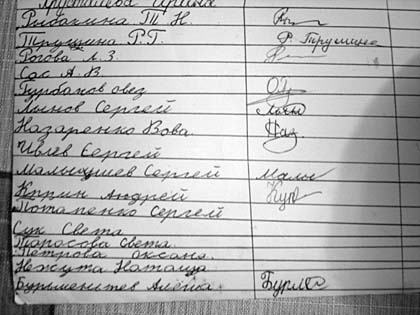 Рыбакина Т. Н.
Трушина Р.Г. Р. Трушина
Рогова Л. З.
Сас А. В.
Турбанов овез
Лынов Сергей
Назаренко Вова. Наз
Ивлев Сергей
Малышев Сергей Малы
Куприн Андрей Куп
Потапенко Сергей
Сук Света
Тарасова Света.
Петрова оксана.
Нежута Наташа
Бурменстев Алёша Бурме